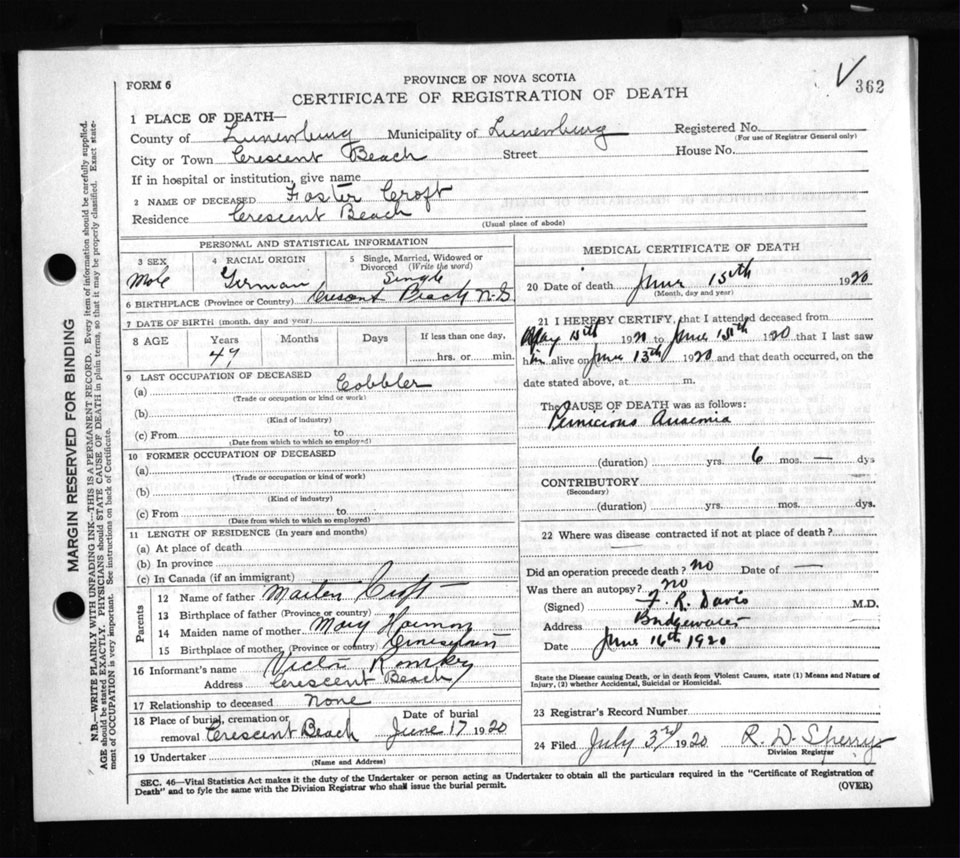 FORM 6
PROVINCE OF NOVA SCOTIA
CERTIFICATE OF REGISTRATION OF DEATH
362
1 PLACE OF DEATH—
County of Lunenburg Municipality of Lunenburg Registered No.
(For use of Registrar General only)
City or Town Crescent Beach Street House No.
If in hospital or institution, give name
2 NAME OF DECEASED Foster Croft
Residence Crescent Beach
(Usual place of abode)
PERSONAL AND STATISTICAL INFORMATION
3 SEX 4 RACIAL ORIGIN 5 Single, Married, Widowed or Divorced (Write the word)
Male German Single
6 BIRTHPLACE (Province or Country) Cresent Beach N.S
7 DATE OF BIRTH (month, day and year)
8 AGE Years Months Days If less than one day,
hrs. or min.
9 LAST OCCUPATION OF DECEASED
(a) Cobbler
(Trade or occupation or kind or work)
(b)
(Kind of industry)
(c) From to
(Date from which to which so employed)
10 FORMER OCCUPATION OF DECEASED
(a)
(Trade or occupation or kind of work)
(b)
(Kind of industry)
(c) From to
(Date from which to which so employed)
11 LENGTH OF RESIDENCE (In years and months)
(a) At place of death
(b) In province
(c) In Canada (if an immigrant)
Parents
12 Name of father Martin Croft
13 Birthplace of father (Province or country)
14 Maiden name of mother Mary
15 Birthplace of mother (Province or country)
16 Informant's name Victor Romkey
Address Crescent Beach
17 Relationship to deceased none
18 Place of burial, cremation or removal Crescent Beach Date of burial June 17 1920
19 Undertaker
(Name and Address)
MEDICAL CERTIFICATE OF DEATH
20 Date of death June 15th 1920
(Month, day and year)
21 I HEREBY CERTIFY, that I attended deceased from
May 15th 1920 to June 15th 1920 that I last saw
him alive on June 13th 1920 and that death occurred, on the
date stated above, at m.
The CAUSE OF DEATH was as follows:
Pernicious Anaemia
(duration) yrs. 6 mos. — dys
CONTRIBUTORY
(Secondary)
(duration) yrs. mos. dys.
22 Where was disease contracted if not at place of death?
Did an operation precede death? no Date of —
Was there an autopsy? no
(Signed) F. R. Davis M.D.
Address Bridgewater
Date June 16th 1920
State the Disease causing Death, or in death from Violent Causes, state (1) Means and Nature of
Injury, (2) whether Accidental, Suicidal or Homicidal.
23 Registrar's Record Number
24 Filed July 3rd 1920 R. D. Sperry
Division Registrar
SEC. 46—Vital Statistics Act makes it the duty of the Undertaker or person acting as Undertaker to obtain all the particulars required in the "Certificate of Registration of
Death" and to fyle the same with the Division Registrar who shall issue the burial permit.
(OVER)
MARGIN RESERVED FOR BINDING
N.B.—WRITE PLAINLY WITH UNFADING INK—THIS IS A PERMANENT RECORD. Every item of information should be carefully supplied.
AGE should be stated EXACTLY. PHYSICIANS should STATE CAUSE OF DEATH in plain terms, so that it may be properly classified. Exact state-
ment of OCCUPATION is very important. See instructions on back of Certificate.